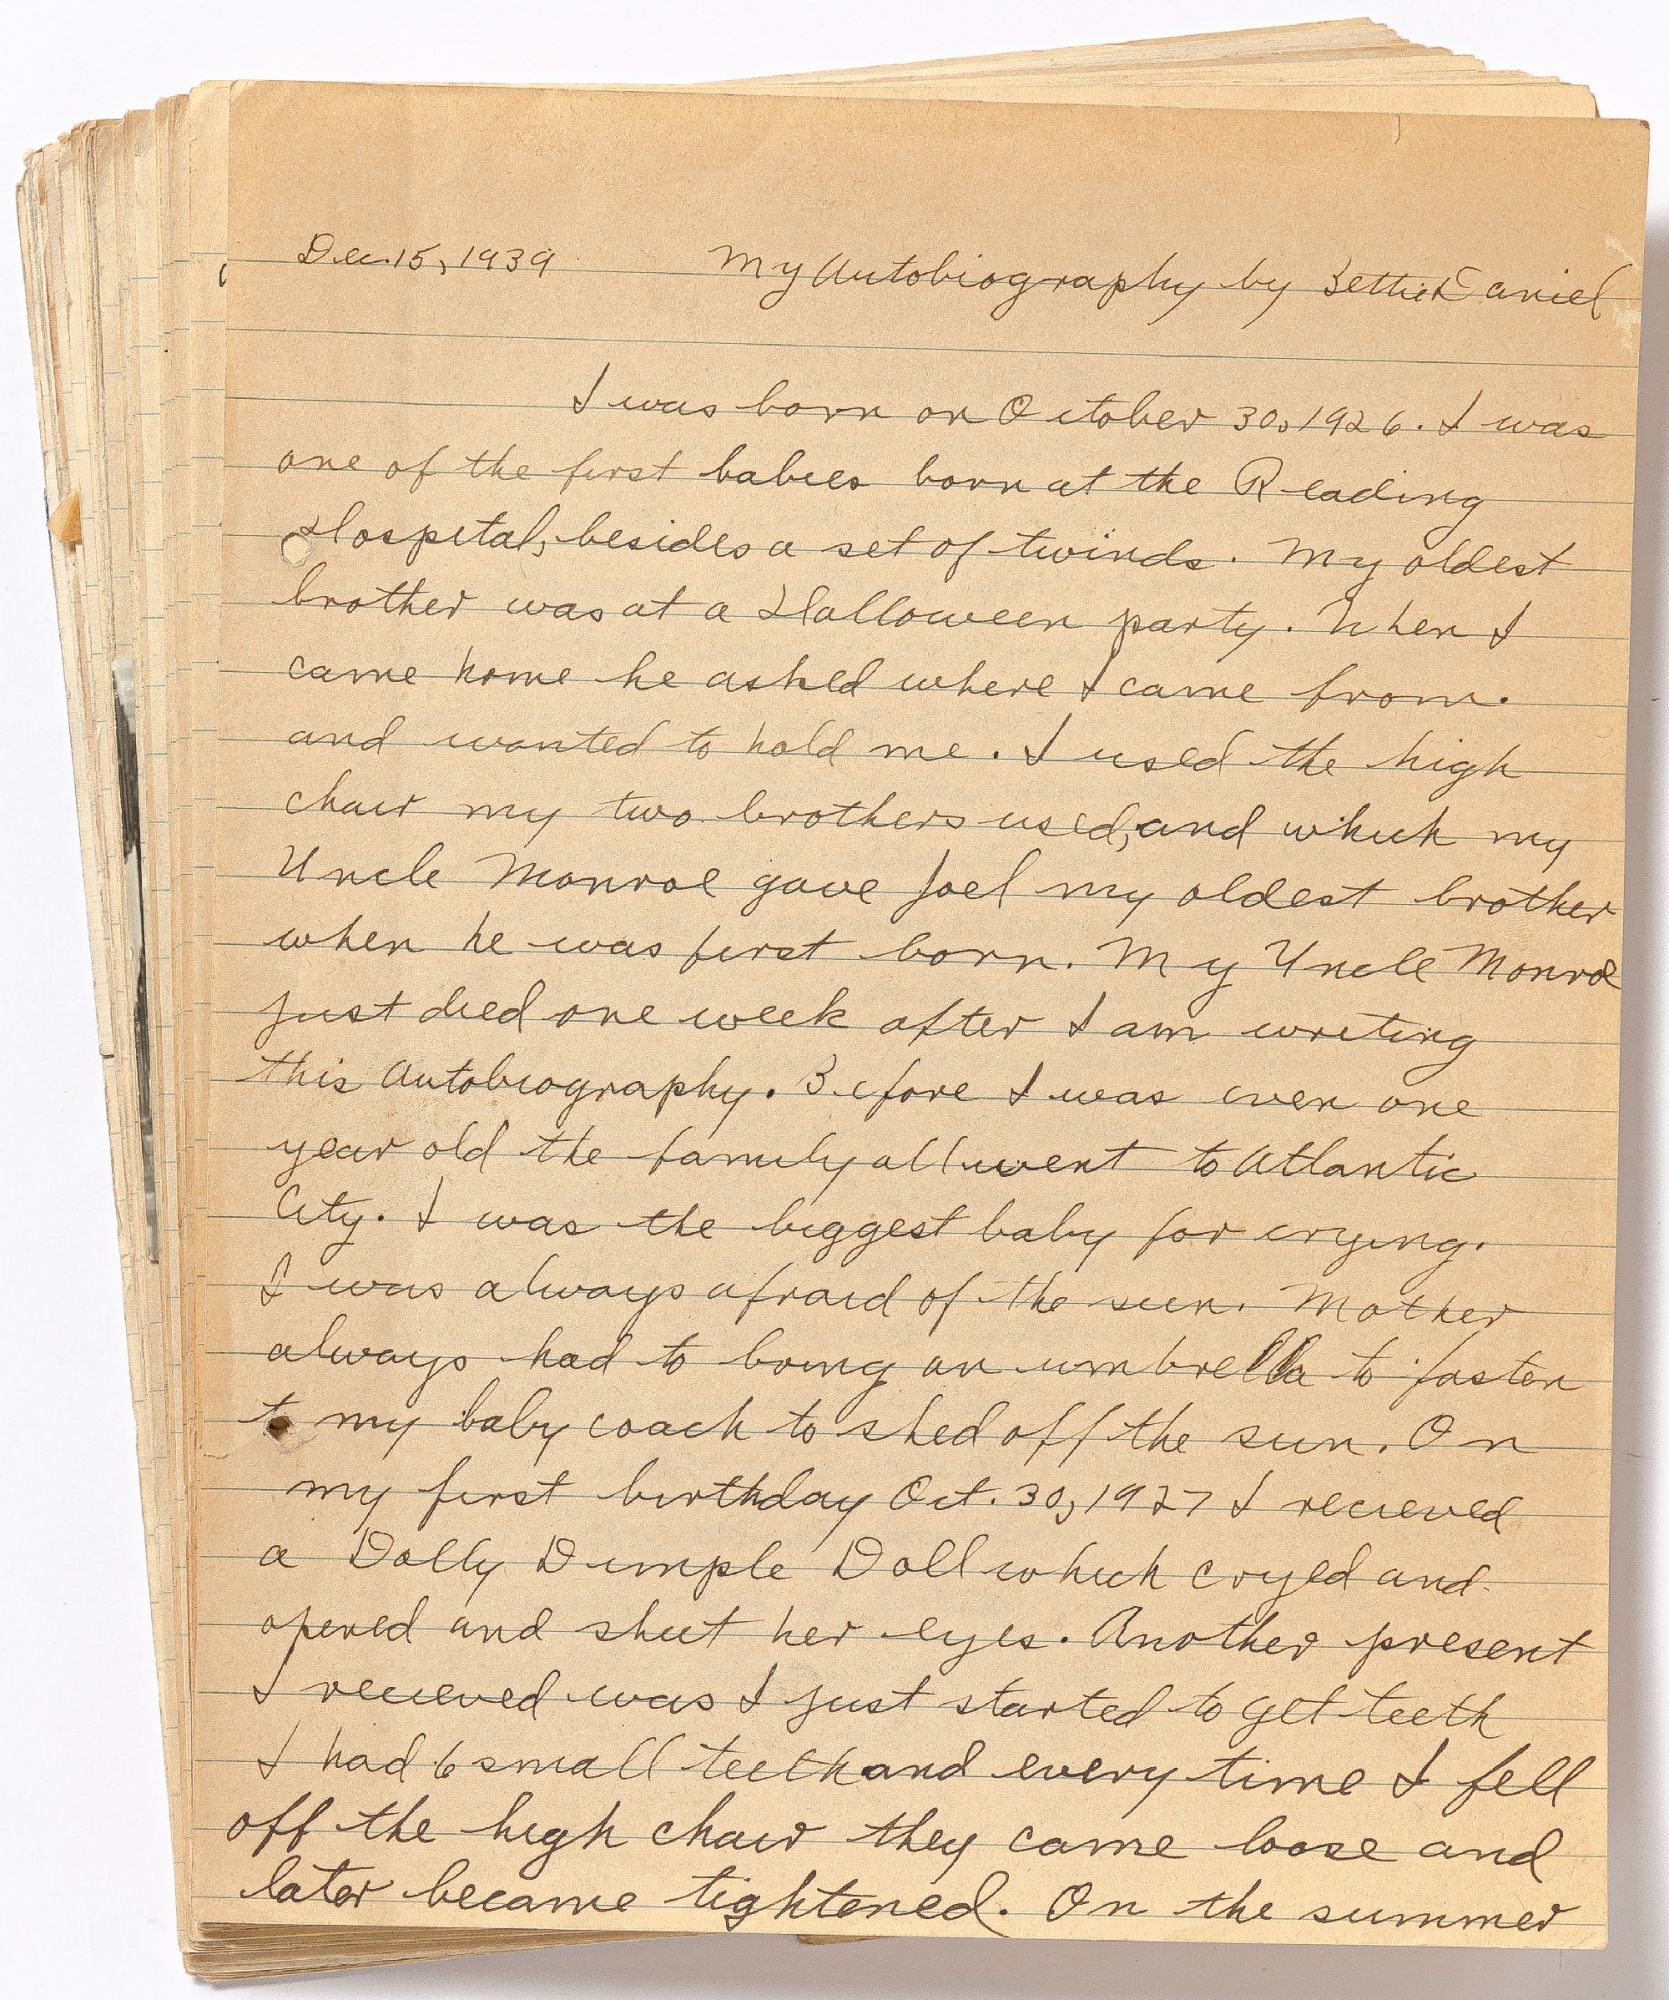 Dec. 15, 1939 My Autobiography by Bettie Daniel
I was born on October 30, 1926. I was
one of the first babies born at the Reading
Hospital, besides a set of twinds. My oldest
brother was at a Halloween party. When I
came home he asked where I came from.
and wanted to hold me. I used the high
chair my two brothers used, and which my
Uncle Monroe gave Joel my oldest brother
when he was first born. My Uncle Monroe
just died one week after I am writing
this Autobiography. Before I was even one
year old the family all went to Atlantic
City. I was the biggest baby for crying.
I was always afraid of the sun. Mother
always had to bring an umbrella to fasten
to my baby coach to shed off the sun. On
my first birthday Oct. 30, 1927 I recieved
a Dolly Dimple Doll which cryed and
opened and shut her eyes. Another present
I recieved was I just started to get teeth
I had 6 small teeth and every time I fell
off the high chair they came loose and
later became tightened. On the summer